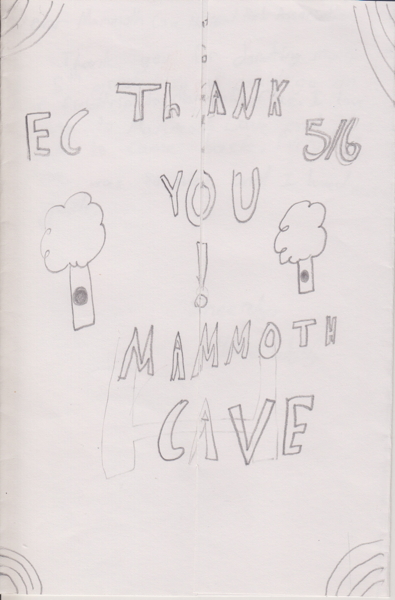 EC THANK 5/6
YOU
!
MAMMOTH
CAVE